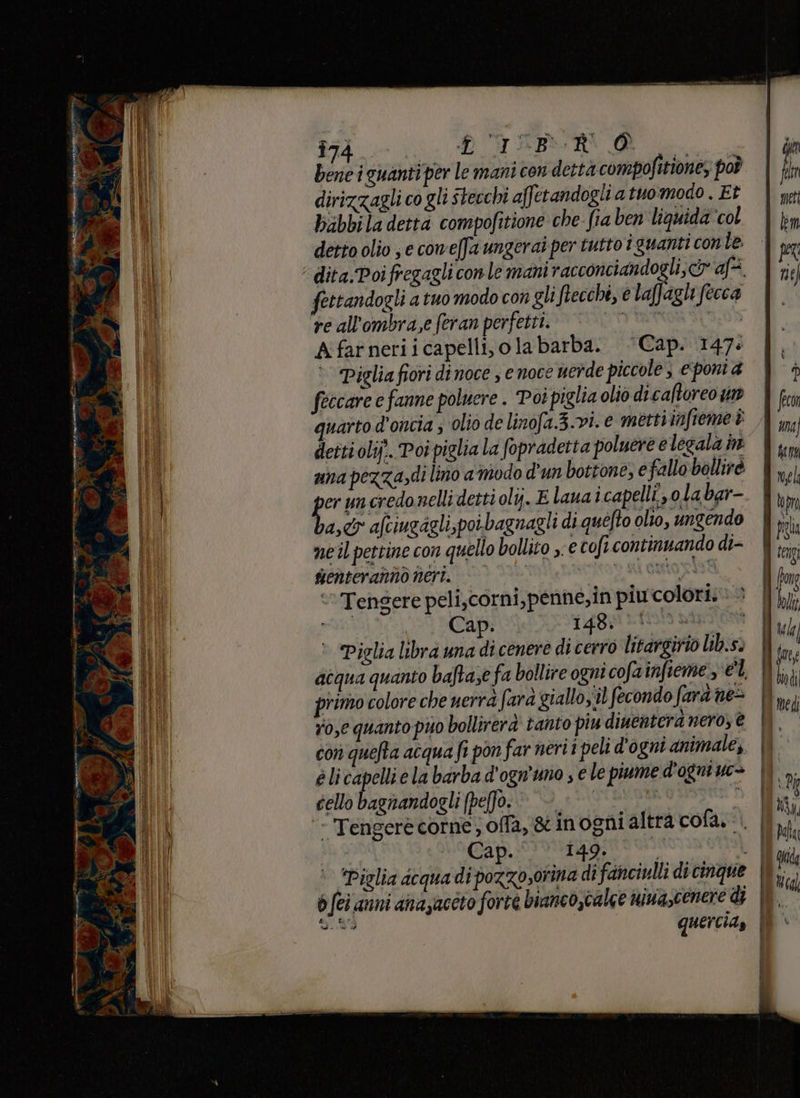 174 LIBRO
bene i guanti per le mani con detta compositione, poi
dirizzagli co gli stecchi assetandogli a tuo modo. Et
habbi la detta compositione che sia ben liquida col
detto olio, e con essa ungerai per tutto i guanti con le
dita. Poi fregagli con le mani racconciandogli, & as-
settandogli a tuo modo con gli stecchi, e lassagli secca
re all'ombra, e seran perfetti.
A far neri i capelli, o la barba. Cap. 147.
Piglia fiori di noce, e noce uerde piccole, e poni a
seccare e fanne poluere. Poi piglia olio di castoreo un
quarto d'oncia, olio de linosa.℥.vi. e metti insieme i
detti olij. Poi piglia la sopradetta poluere e legala in
una pezza, di lino a modo d'un bottone, e fallo bollire
per un credo nelli detti olij. E laua i capelli, o la bar-
ba, & asciugagli, poi bagnagli di questo olio, ungendo
ne il pettine con quello bollito, e cosi continuando di-
uenteranno neri.
Tengere peli, corni, penne, in piu colori.
Cap. 148.
Piglia libra una di cenere di cerro litargirio lib.s.
acqua quanto basta, e fa bollire ogni cosa insieme, e'l
primo colore che uerrà sarà giallo, il secondo sarà ne-
ro, e quanto piu bollirerà tanto piu diuenterà nero, e
con questa acqua si pon far neri i peli d'ogni animale,
e li capelli e la barba d'ogn'uno, e le piume d'ogni uc-
cello bagnandogli spesso.
Tengere corne, ossa, & in ogni altra cosa.
Cap. 149.
Piglia acqua di pozzo, orina di fanciulli di cinque
o sei anni ana, aceto forte bianco, calce uiua, cenere di
quercia,